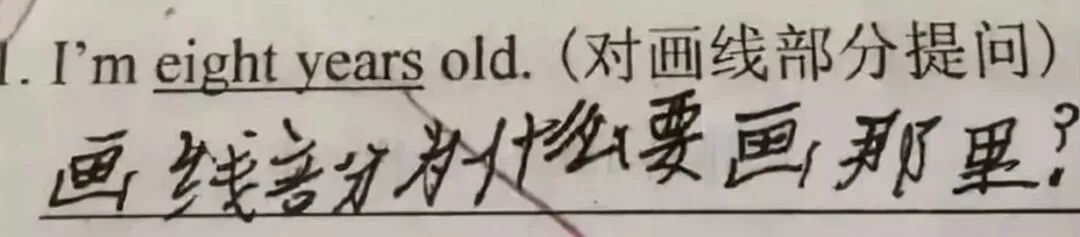 1. I'm eight years old. (对画线部分提问)
画线部分为什么要画那里?